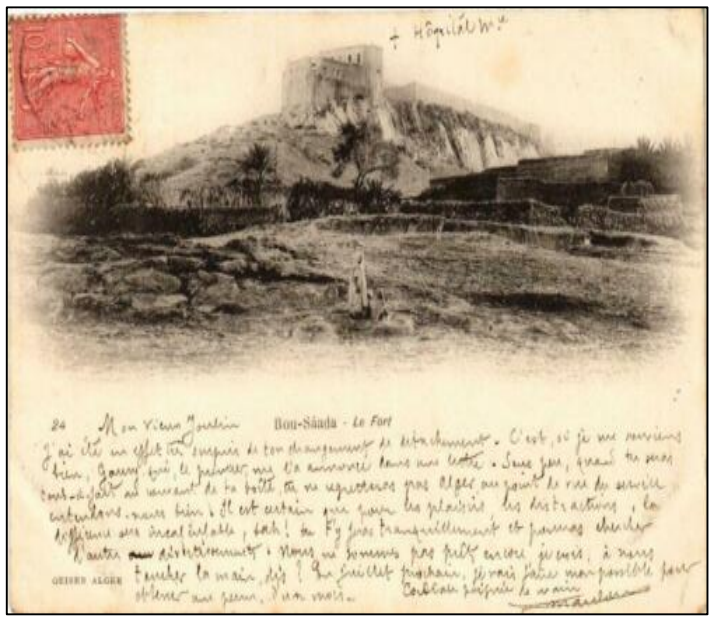 10
+ Hôpital Mre
24 Mon vieux Bou-Sâada - Le Fort
J'ai été en effet très surpris de ton changement de détachement. C'est, si je me souviens
bien, qui, le premier, me l'a annoncé dans une lettre. Sous peu, quand tu seras
tout-à-fait au courant de ta boîte, tu ne regretteras pas Alger au point de vue du service
entendons-nous bien. Il est certain que pour les plaisirs, les distractions, la
différence est incalculable, bah! tu t'y feras tranquillement et pourras chercher
d'autres divertissements. Nous ne sommes pas prêt encore je crois, à nous
toucher la main, dis? En Juillet prochain, je vais faire mon possible pour
GEISER ALGER
obtenir une perm. d'un mois. Cordiale poignée de main